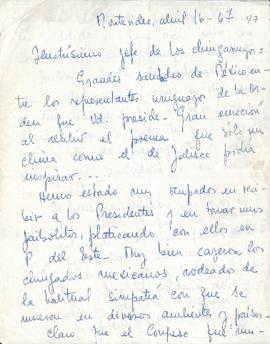 Montevideo, abril 16-67
Ilustrísimo jefe de los chingamogo-
Grandes saludos de México en-
tre los representantes uruguayos de la or-
den que Ud. preside. Gran emoción
al recibir el poema que sólo un
clima como el de Jalisco podía
inspirar....
Hemos estado muy ocupados en reci-
bir a los Presidentes y en tomar unos
jaibolitos, platicando con ellos en
P. del Este. Muy bien cayeron los
chingados mexicanos, rodeados de
la habitual simpatía con que se
mueven en diversos ambientes y países.
Claro que el Congreso fué